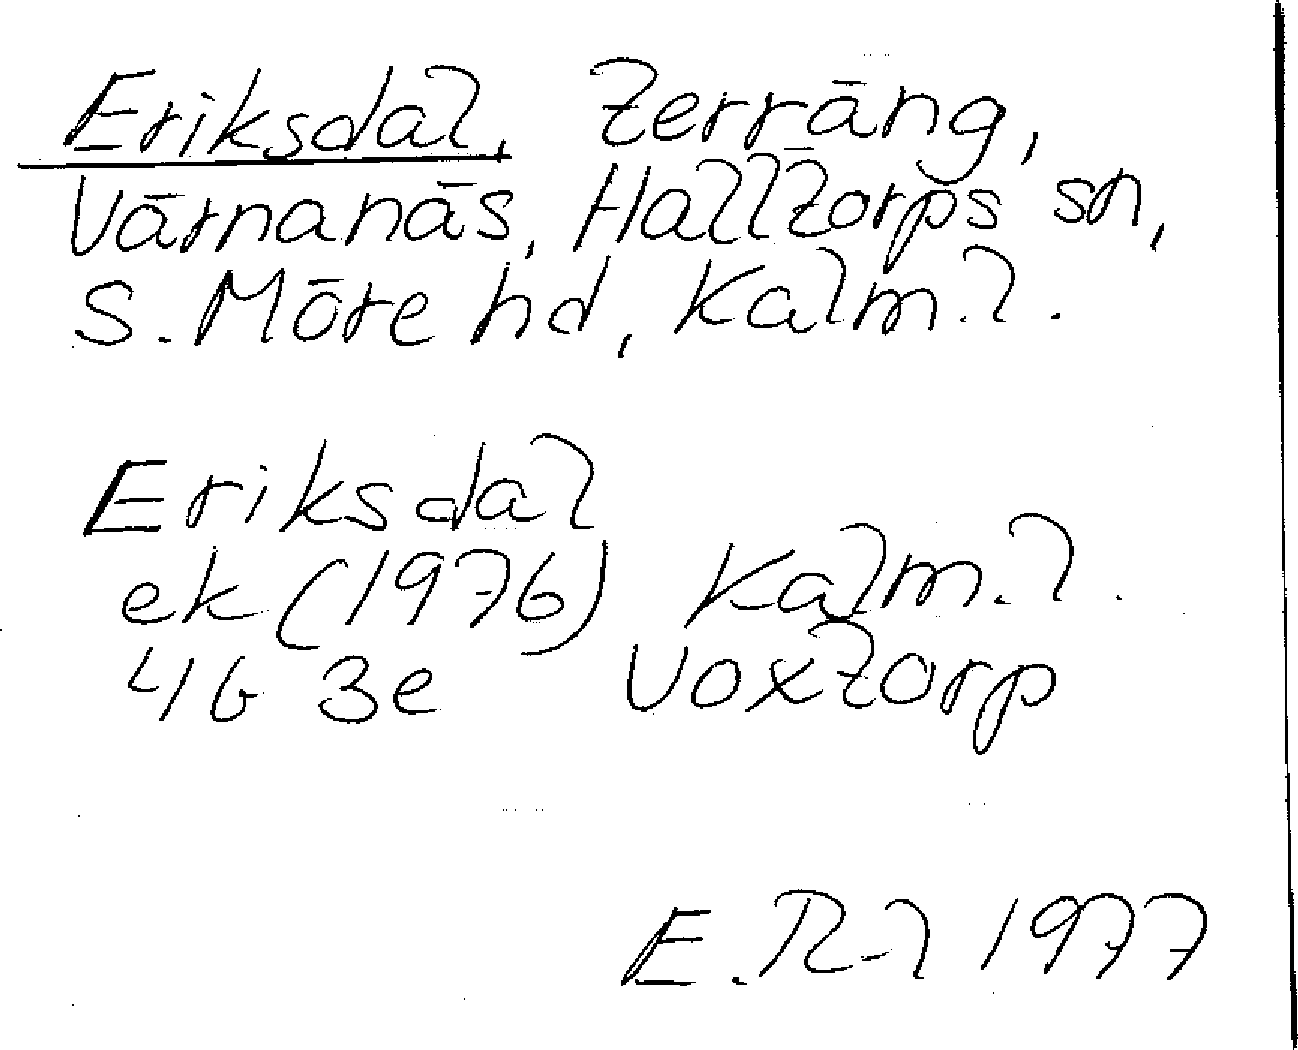 Eriksdal, terräng,
Värnanäs, Halltorps sn,
S. Möre hd, Kalm. l.
Eriksdal
ek (1976) Kalm. l.
4G 3e Voxtorp
E. R-l 1977